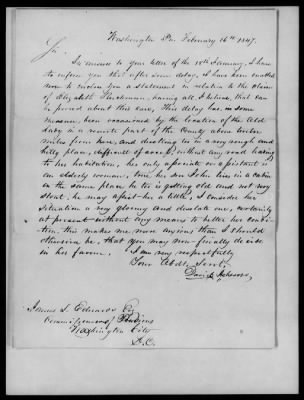 Washington Pa. February 16th 1847.
Sir,
In answer to your letter of the 18th January, I have
to inform you that after some delay, I have been enabled
now to enclose you a statement in relation to the claim
of Elizabeth, having all, I believe, that can
be proved about this case, This delay has in some
measure, been occasioned by the location of the old
lady in a remote part of the County above twelve
miles from here, and situating in a very rough and
hilly place, difficult of access, without any road leading
to her habitation, her only associate or assistant is
an elderly woman, tho' her son John lives in a cabin
in the same place he too is getting old and not very
stout, he may assist her a little, I consider her
situation a very gloomy and desolate one, certainly
at present without any means to better her condi-
tion, this makes me more anxious than I should
otherwise be, that you may now finally decide
in her favour. I am very respectfully
Your Obdt. Servt.
David Acheson,
James L. Edwards Esq
Commissioner of Pensions
Washington City
D.C.